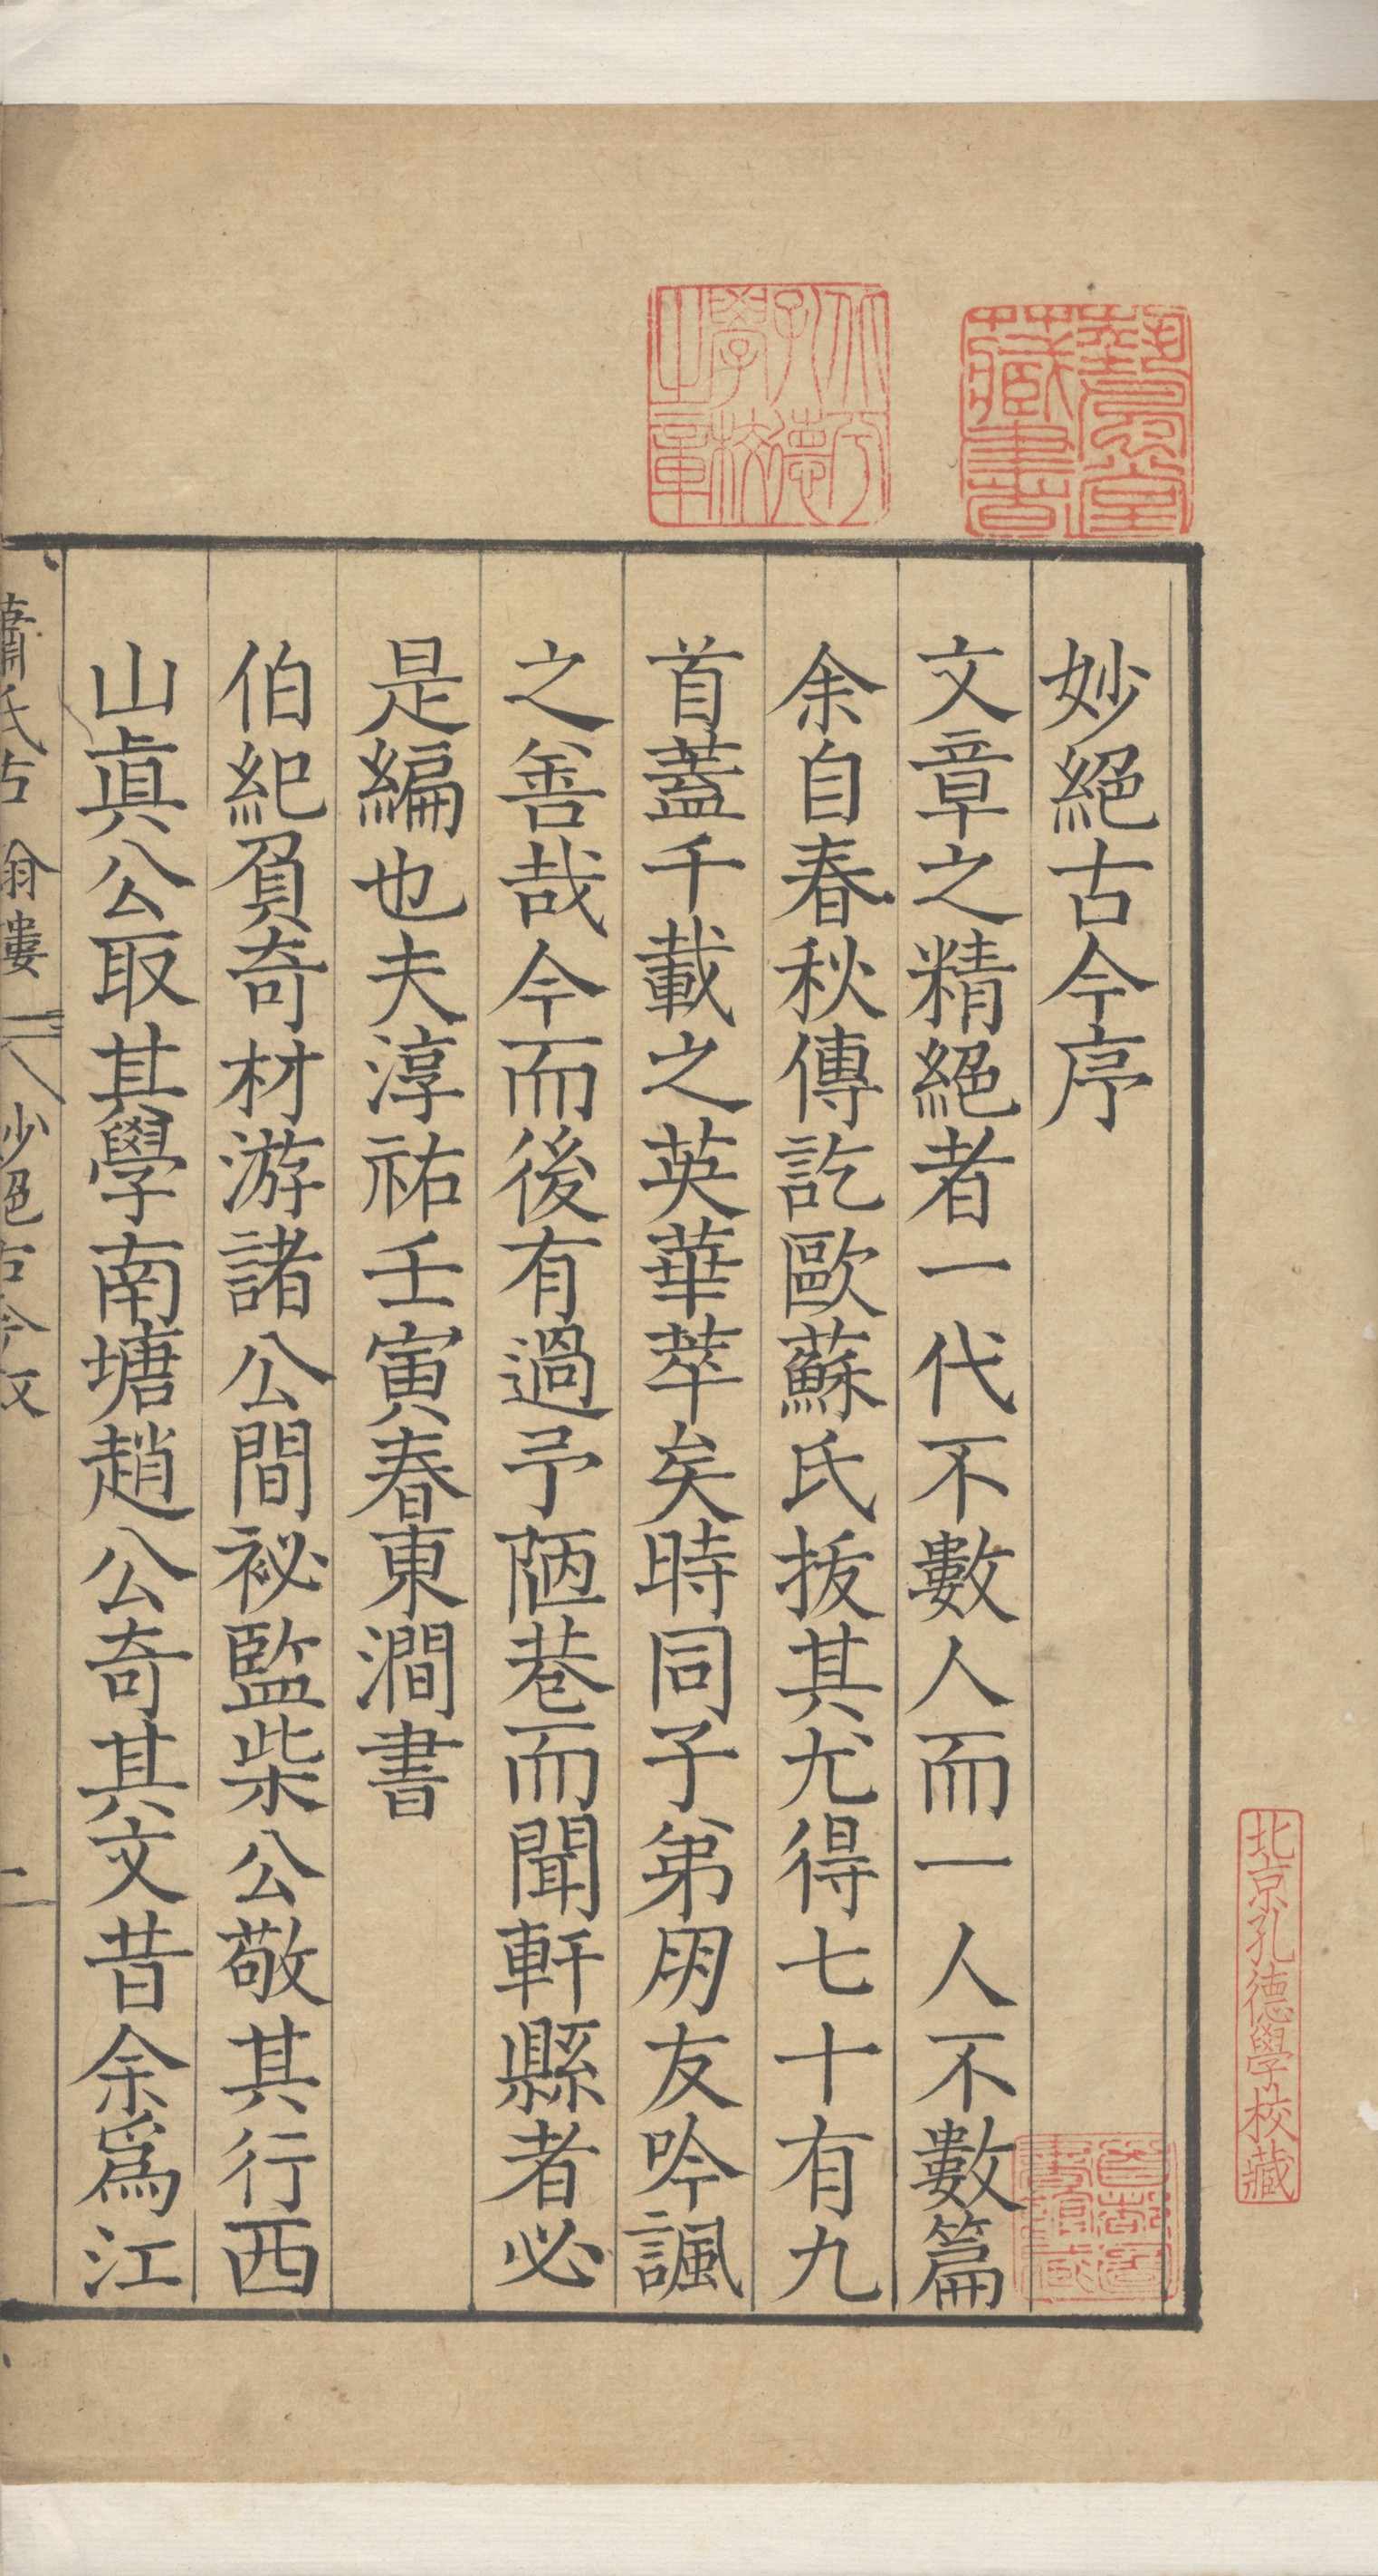 妙絕古今序
文章之精絕者一代不數人而一人不數篇
余自春秋傳訖歐蘇氏拔其尤得七十有九
首蓋千載之英華萃矣時同子弟朋友吟諷
之善哉今而後有過予陋巷而聞軒縣者必
是編也夫淳祐壬寅春東澗書
伯紀負奇材游諸公間祕監柴公敬其行西
山眞公取其學南塘趙公奇其文昔余爲江
蕭氏古翁婁
妙絕古今文
二
北京孔德學校藏
北平孔德學校之章
藏書